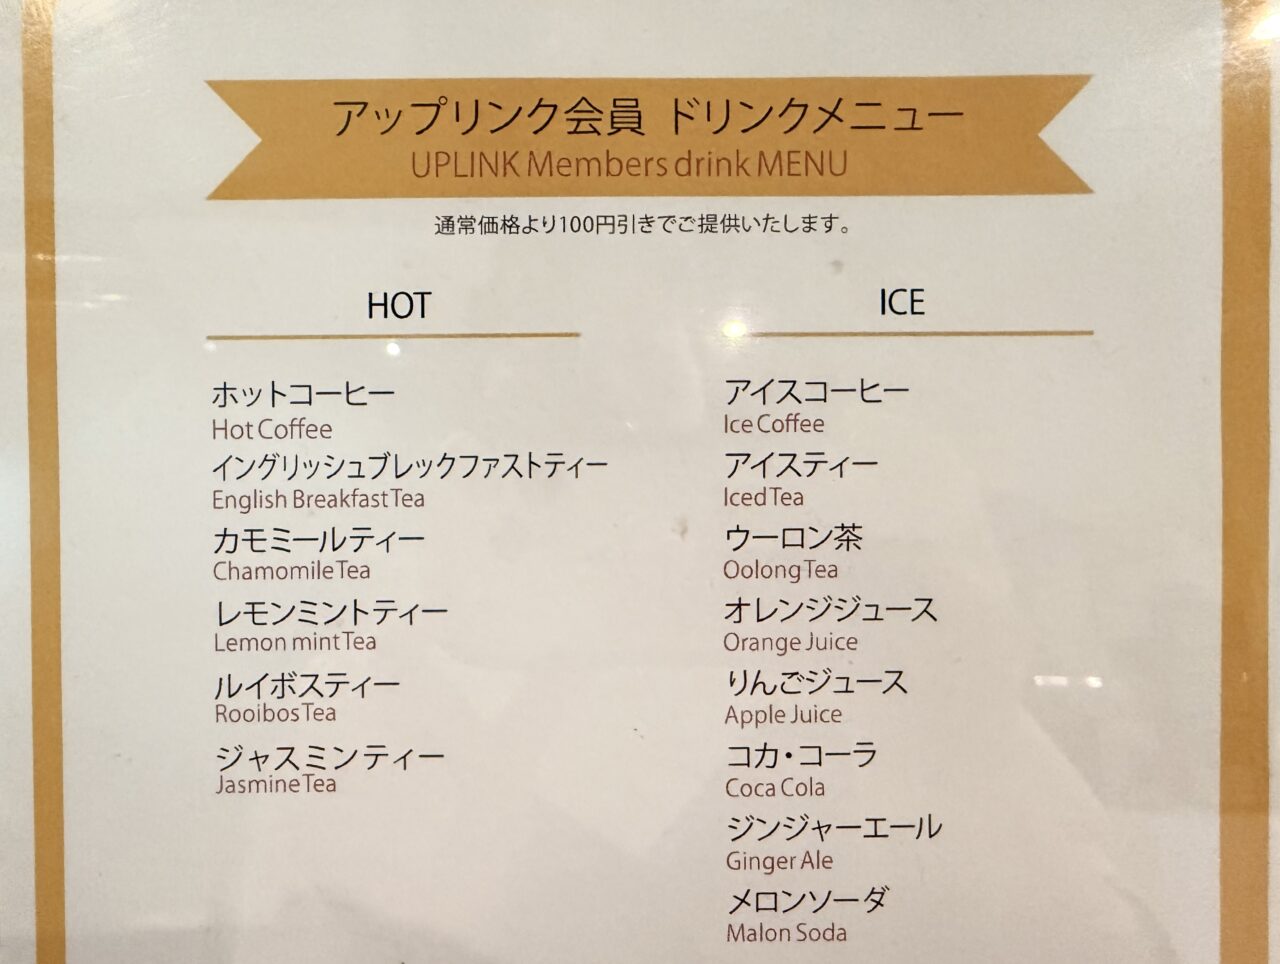 アップリンク会員 ドリンクメニュー
UPLINK Members drink MENU
通常価格より100円引きでご提供いたします。
HOT
ホットコーヒー
Hot Coffee
イングリッシュブレックファストティー
English Breakfast Tea
カモミールティー
Chamomile Tea
レモンミントティー
Lemon mint Tea
ルイボスティー
Rooibos Tea
ジャスミンティー
Jasmine Tea
ICE
アイスコーヒー
Ice Coffee
アイスティー
Iced Tea
ウーロン茶
Oolong Tea
オレンジジュース
Orange Juice
りんごジュース
Apple Juice
コカ・コーラ
Coca Cola
ジンジャーエール
Ginger Ale
メロンソーダ
Malon Soda